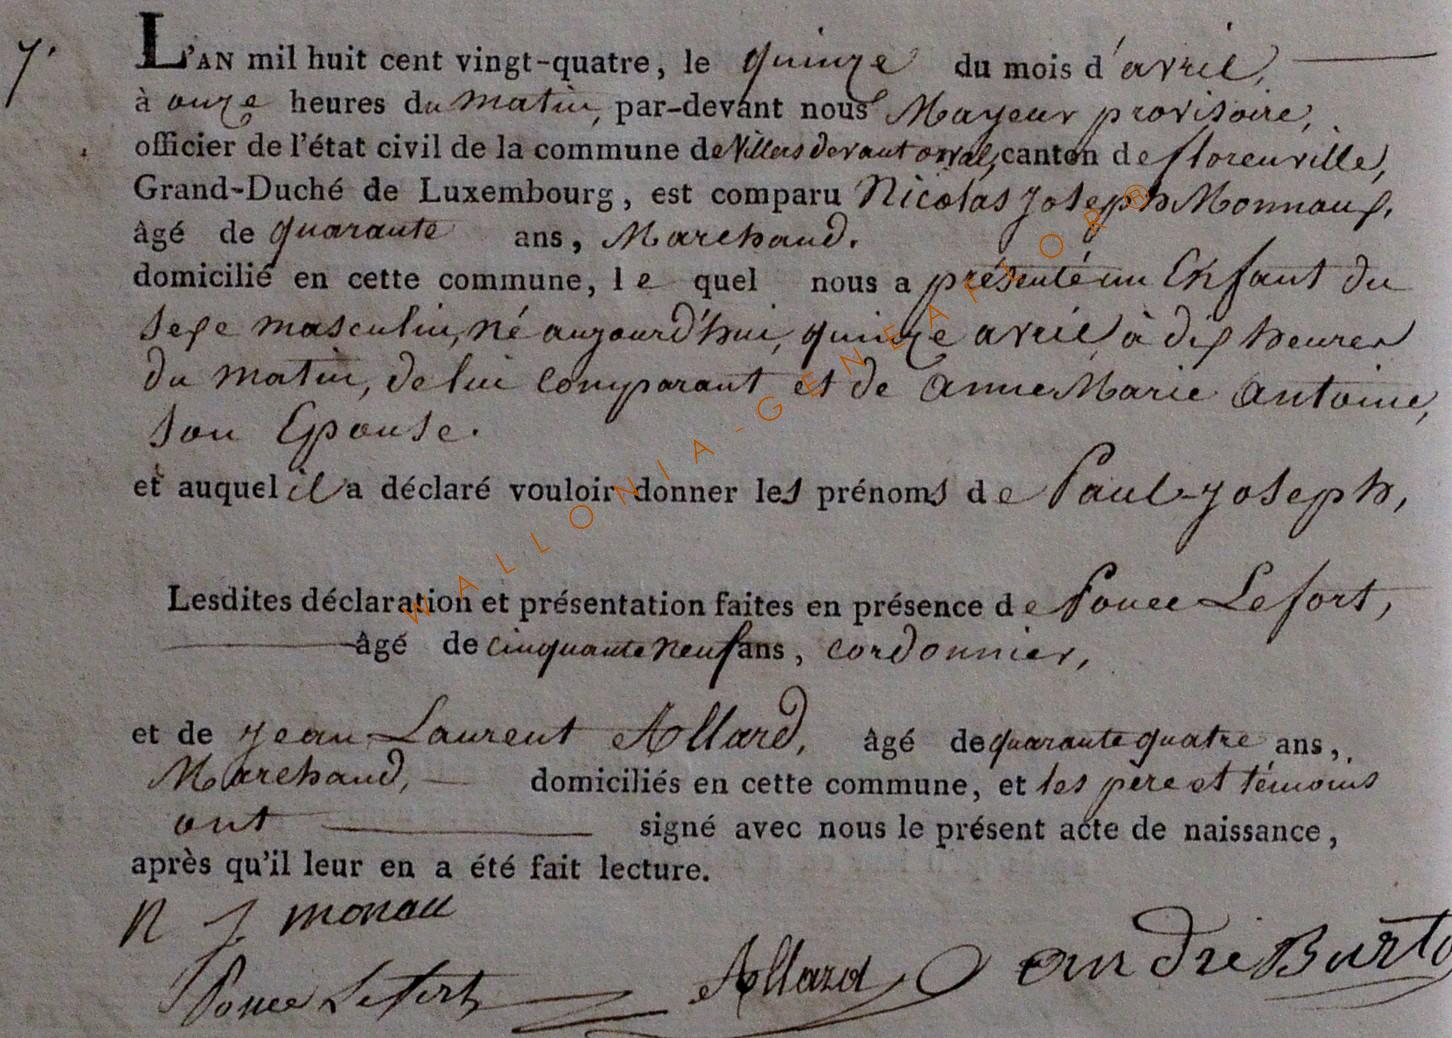 7.
L'AN mil huit cent vingt-quatre, le quinze du mois d'avril,
à onze heures du matin, par-devant nous Mayeur provisoire,
officier de l'état civil de la commune de Villers devant orval, canton de florenville,
Grand-Duché de Luxembourg, est comparu Nicolas Joseph Monnaux,
âgé de quarante ans, Marchand.
domicilié en cette commune, le quel nous a présenté un Enfant du
sexe masculin, né aujourd'hui, quinze avril à dix heures
du matin, de lui comparant et de anne Marie Antoine,
son Epouse.
et auquel il a déclaré vouloir donner les prénoms de Paul-Joseph,
Lesdites déclaration et présentation faites en présence de Ponce Lefort,
âgé de cinquante neuf ans, cordonnier,
et de Jean Laurent Allard, âgé de quarante quatre ans,
Marchand, domiciliés en cette commune, et les père et témoins
ont signé avec nous le présent acte de naissance,
après qu'il leur en a été fait lecture.
N J monau
Ponce Lefort Allard andré Burto
WALLONIA-GENEAFLORB